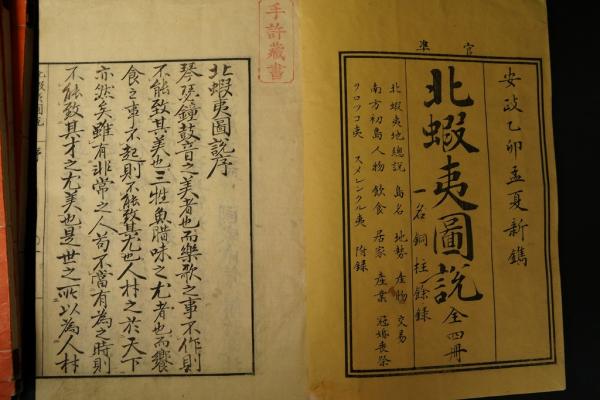 官准
安政乙卯孟夏新鐫
北蝦夷圖説 全四冊
一名銅柱餘録
北蝦夷地總説 島名 地勢 産物 交易
南方初島人物 飲食 居家 産業 冠婚喪祭
ヲロツコ夷 スメレンクル夷 附録
手許藏書
北蝦夷圖説序
琴瑟鐘鼓音之美者也而樂歌之事不作則
不能致其美也三牲魚腊味之尤者也而饗
食之事不起則不能致其尤也人材之於天下
亦然矣雖有非常之人苟不當有為之時則
不能致其才之尤美也是世之所以為人材
北蝦夷圖説 序